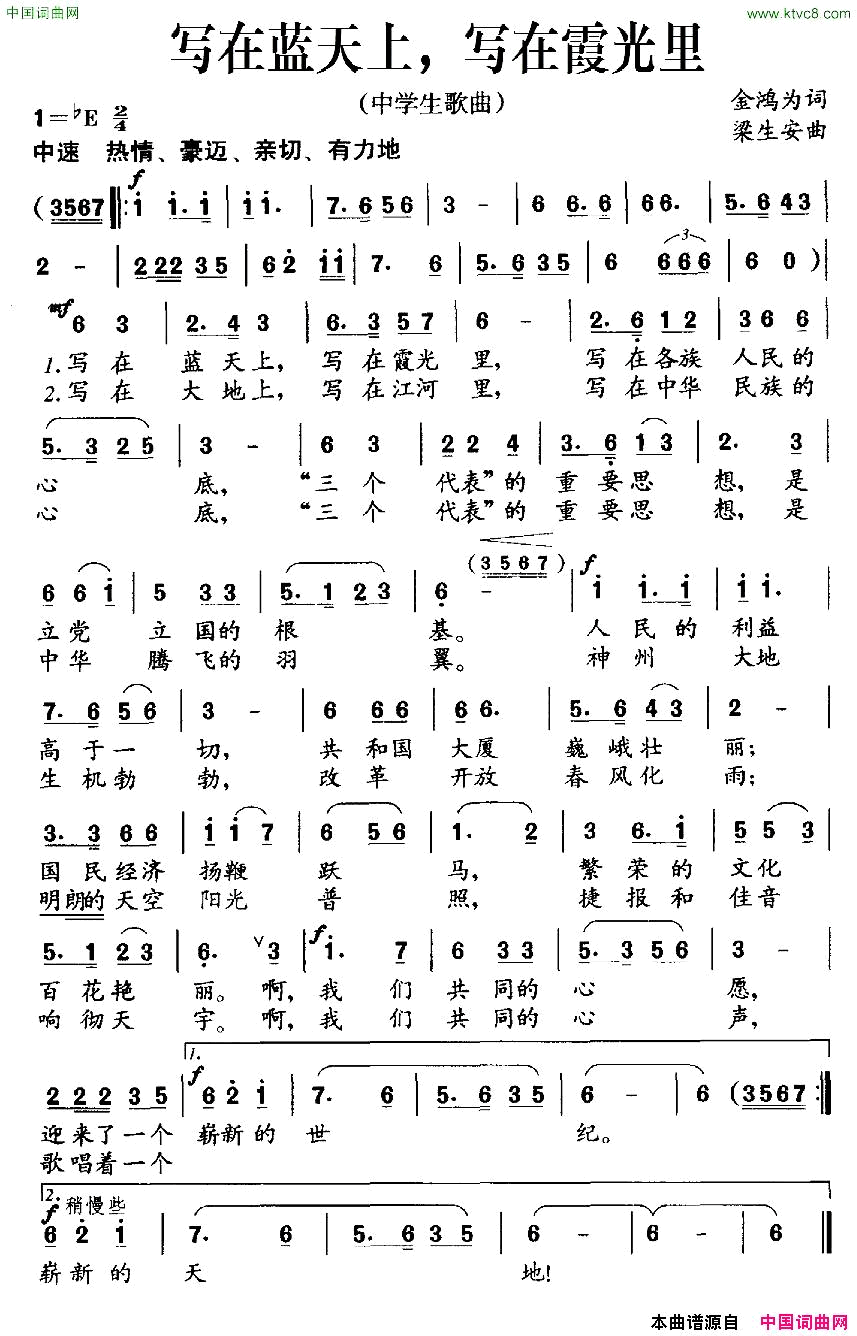 中国词曲网
www.ktvc8.com
写在蓝天上，写在霞光里
（中学生歌曲）
金鸿为词
梁生安曲
1=♭E 2/4
中速 热情、豪迈、亲切、有力地
f
(3567 ‖: i i. i | i i. | 7. 6 5 6 | 3 - | 6 6. 6 | 6 6. | 5. 6 4 3 |
2 - | 2 22 3 5 | 6 2 i i | 7. 6 | 5. 6 3 5 | 6 6 6 6 | 6 0 )|
mf
6 3 | 2. 4 3 | 6. 3 5 7 | 6 - | 2. 6 1 2 | 3 6 6 |
1.写 在 蓝 天上， 写 在霞光 里， 写 在各族 人民的
2.写 在 大 地上， 写 在江河 里， 写 在中华 民族的
5. 3 2 5 | 3 - | 6 3 | 2 2 4 | 3. 6 1 3 | 2. 3 |
心 底， “三 个 代表”的 重 要思 想，是
心 底， “三 个 代表”的 重 要思 想，是
(3 5 6 7) f
6 6 i | 5 3 3 | 5. 1 2 3 | 6 - | i i. i | i i. |
立党 立国的 根 基。 人 民的 利益
中华 腾飞的 羽 翼。 神 州 大地
7. 6 5 6 | 3 - | 6 6 6 | 6 6. | 5. 6 4 3 | 2 - |
高于一 切， 共 和国 大厦 巍峨壮 丽；
生机勃 勃， 改 革 开放 春风化 雨；
3. 3 6 6 | i i 7 | 6 5 6 | 1. 2 | 3 6. i | 5 5 3 |
国民经济 扬鞭 跃 马， 繁 荣的 文化
明朗的天空 阳光 普 照， 捷 报和 佳音
5. 1 2 3 | 6. ∨ 3 | f i. 7 | 6 3 3 | 5. 3 5 6 | 3 - |
百花艳 丽。啊，我 们 共 同的 心 愿，
响彻天 宇。啊，我 们 共 同的 心 声，
1.
2 2 2 3 5 | f 6 2 i | 7. 6 | 5. 6 3 5 | 6 - | 6 (3567 :‖
迎来了一个 崭新的 世 纪。
歌唱着一个
2.
f 稍慢些
6 2 i | 7. 6 | 5. 6 3 5 | 6 - | 6 - | 6 - ‖
崭新的 天 地！
本曲谱源自 中国词曲网